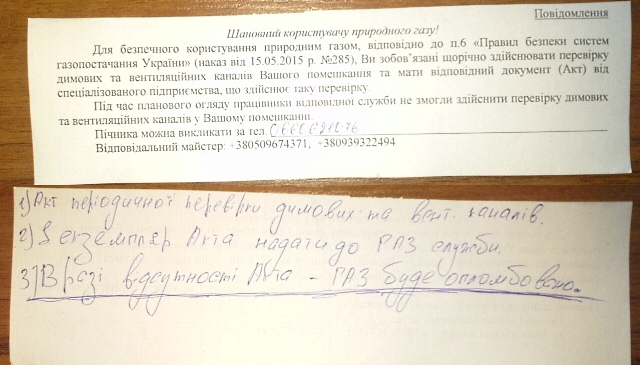 Повідомлення
Шановний користувачу природного газу!
Для безпечного користування природним газом, відповідно до п.6 «Правил безпеки систем
газопостачання України» (наказ від 15.05.2015 р. №285), Ви зобов'язані щорічно здійснювати перевірку
димових та вентиляційних каналів Вашого помешкання та мати відповідний документ (Акт) від
спеціалізованого підприємства, що здійснює таку перевірку.
Під час планового огляду працівники відповідної служби не змогли здійснити перевірку димових
та вентиляційних каналів у Вашому помешканні.
Пічника можна викликати за тел.
Відповідальний майстер: +380509674371, +380939322494
1) Акт періодичної перевірки димових та вент. каналів.
2) 1 екземпляр Акта надати до РАЗ служби.
3) В разі відсутності Акта – ГАЗ буде опломбовано.